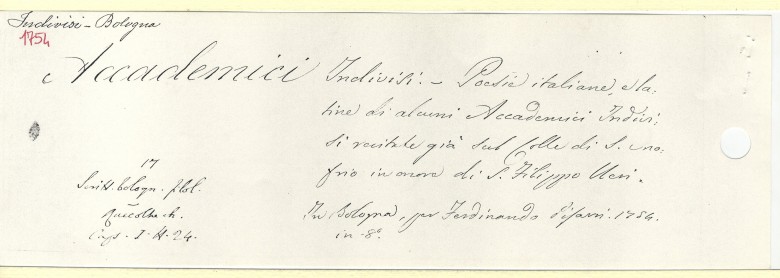 Indivisi - Bologna
1754
Accademici Indivisi. - Poesie italiane, e la-
tine di alcuni Accademici Indivi-
si recitate già sul Colle di S. Ono-
frio in onore di S. Filippo Neri.
In Bologna, per Ferdinando Pisarri. 1754.
in - 8°.
17
Scritt. bologn. filol.
Raccolte ch.
Caps. I - H. 24.